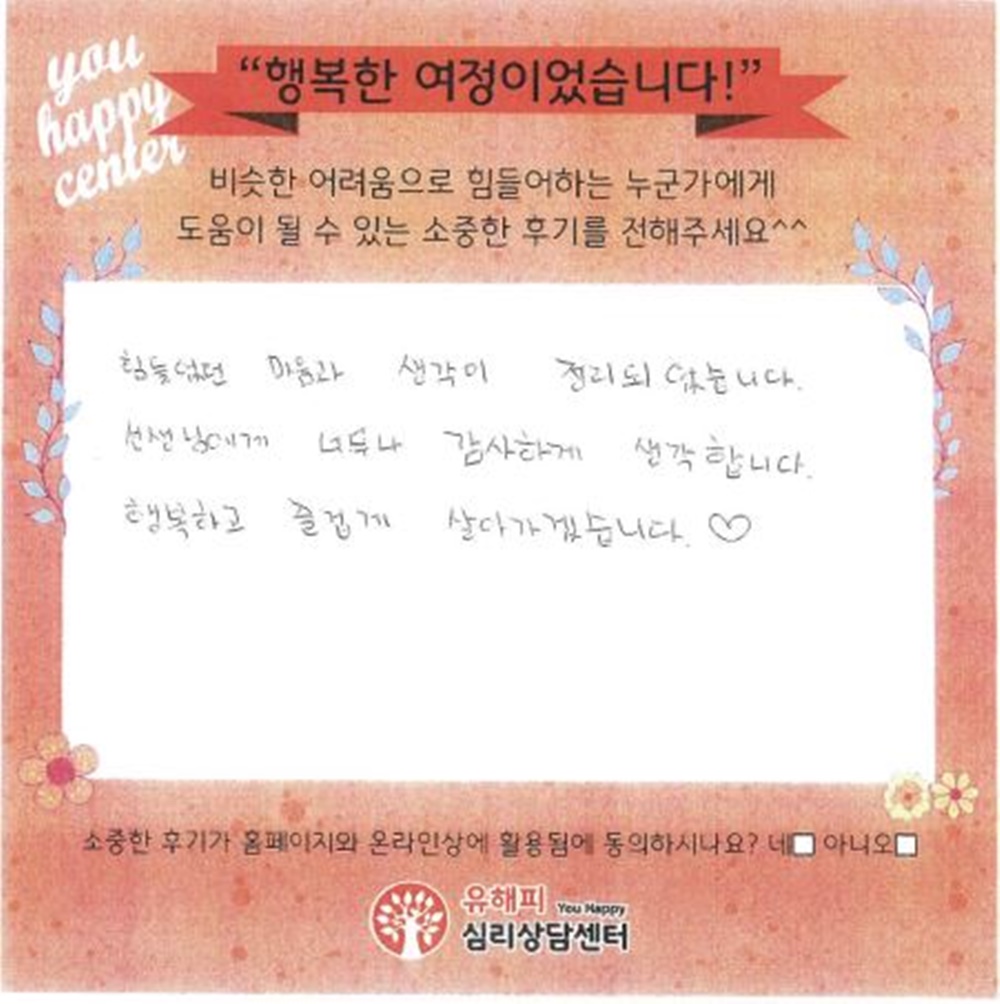 you
happy
center
“행복한 여정이었습니다!”
비슷한 어려움으로 힘들어하는 누군가에게
도움이 될 수 있는 소중한 후기를 전해주세요^^
힘들었던 마음과 생각이 정리되었습니다.
선생님에게 너무나 감사하게 생각합니다.
행복하고 즐겁게 살아가겠습니다. ♡
소중한 후기가 홈페이지와 온라인상에 활용됨에 동의하시나요? 네□ 아니오□
유해피 You Happy
심리상담센터